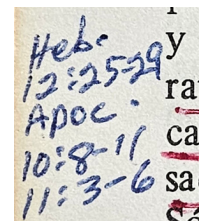 Heb.
12:25-29
Apoc.
10:8-11
11:3-6
y
ra
ca
sa